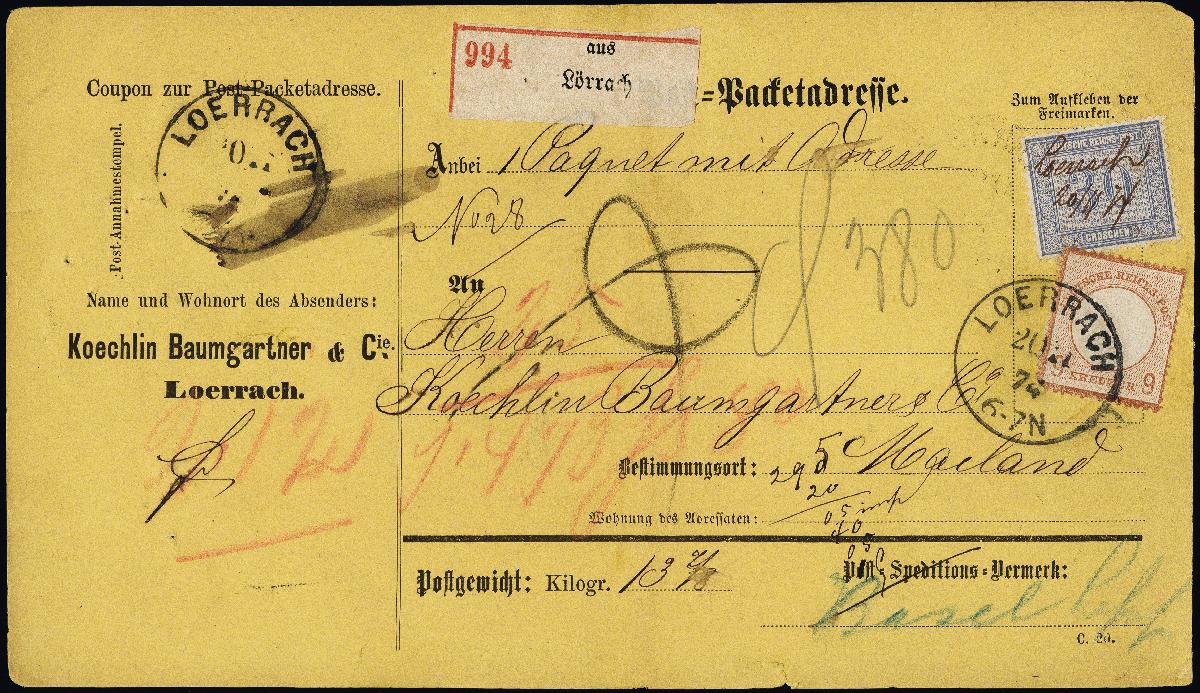 994
aus
Lörrach
Coupon zur Post-Packetadresse.
LOERRACH
Post-Annahmestempel.
Name und Wohnort des Absenders:
Koechlin Baumgartner & Cie.
Loerrach.
-Packetadresse.
Zum Aufkleben der
Freimarken.
Anbei 1 Paquet mit Adresse
No 28
380
An
Herren
Koechlin Baumgartner & Co
Bestimmungsort: Mailand
295
20
Wohnung des Adressaten:
Postgewicht: Kilogr. 13
Post-Speditions-Vermerk:
Basel
C. 20.
GROSCHEN
LOERRACH
20
74
6-7N
9
KREUZER